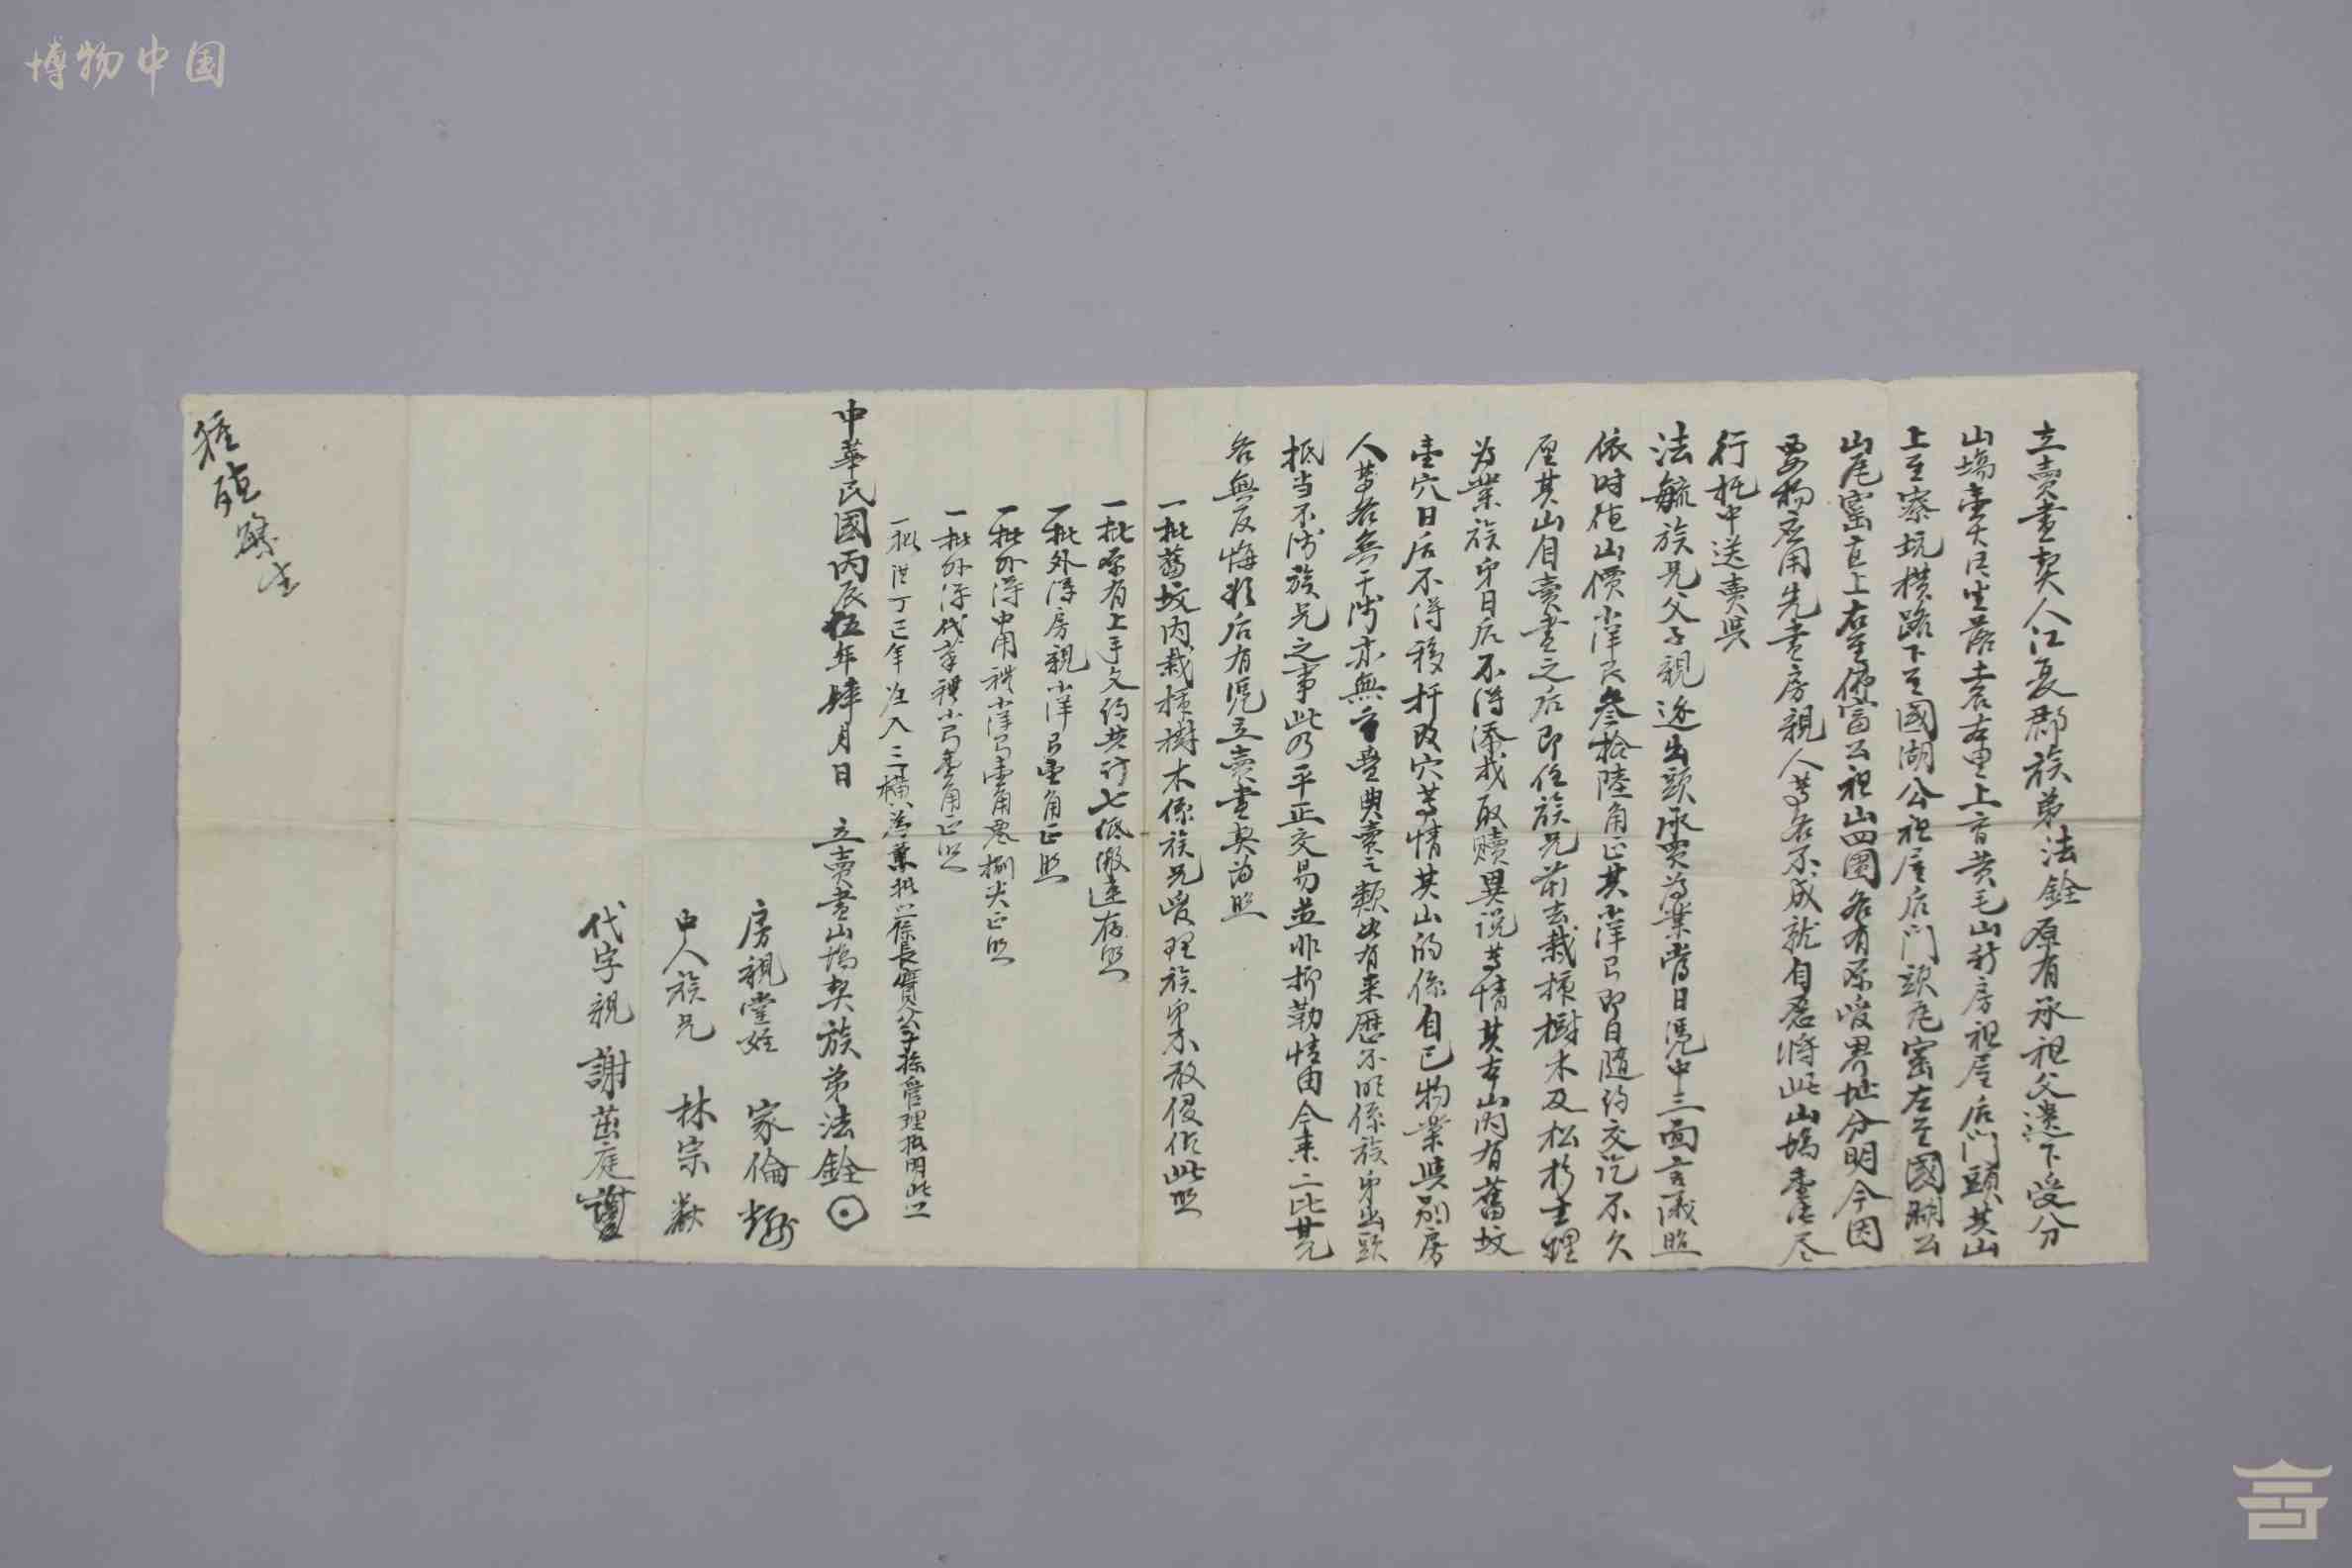 博物中国
立賣盡契人江夏郡族弟法銓原有承祖父遺下受分
山塲壹大尺坐落土名右里上音黄毛山新房祖屋后门頭其山
上至寮坑横路下至國湖公祖屋后门頭瓦窑左至國湖公
山尾窑直上右至佛富公祖山四圍各有原受界址分明今因
要物应用先盡房親人等各不成就自愿將此山塲壹大尺
行托中送賣與
法毓族兄父子親逐出頭承買為業當日凭中三面言議照
依時值山價小洋艮叁拾陸角正其小洋艮即日隨約交訖不欠
厘其山自賣盡之后即任族兄前去栽㮋樹木及松杉主理
为業族弟日后不得添找取贖異説等情其本山内有舊坟
壹穴日后不得移扦改穴等情其山的係自己物業與别房
人等各無干涉亦無重疊典賣之類如有来歷不明係族弟出頭
抵当不涉族兄之事此乃平正交易並非抑勒情由今来二比甘允
各無反悔欲后有凭立賣盡契為照
一批舊坟内栽㮋樹木係族兄受理族弟不敢侵佔此照
一批原有上手文約共行七紙繳連存照
一批外淂房親小洋艮壹角正照
一批外淂中用禮小洋艮壹角零捌尖正照
一批外淂代筆禮小艮壹角正照
一批 丁巳年 入三横為業批 係長寶公子孫管理 此照
中華民國丙辰伍年肆月日 立賣盡山塲契族弟法銓
房親堂姪 家倫
中人族兄 林宗
代字親 謝茁庭